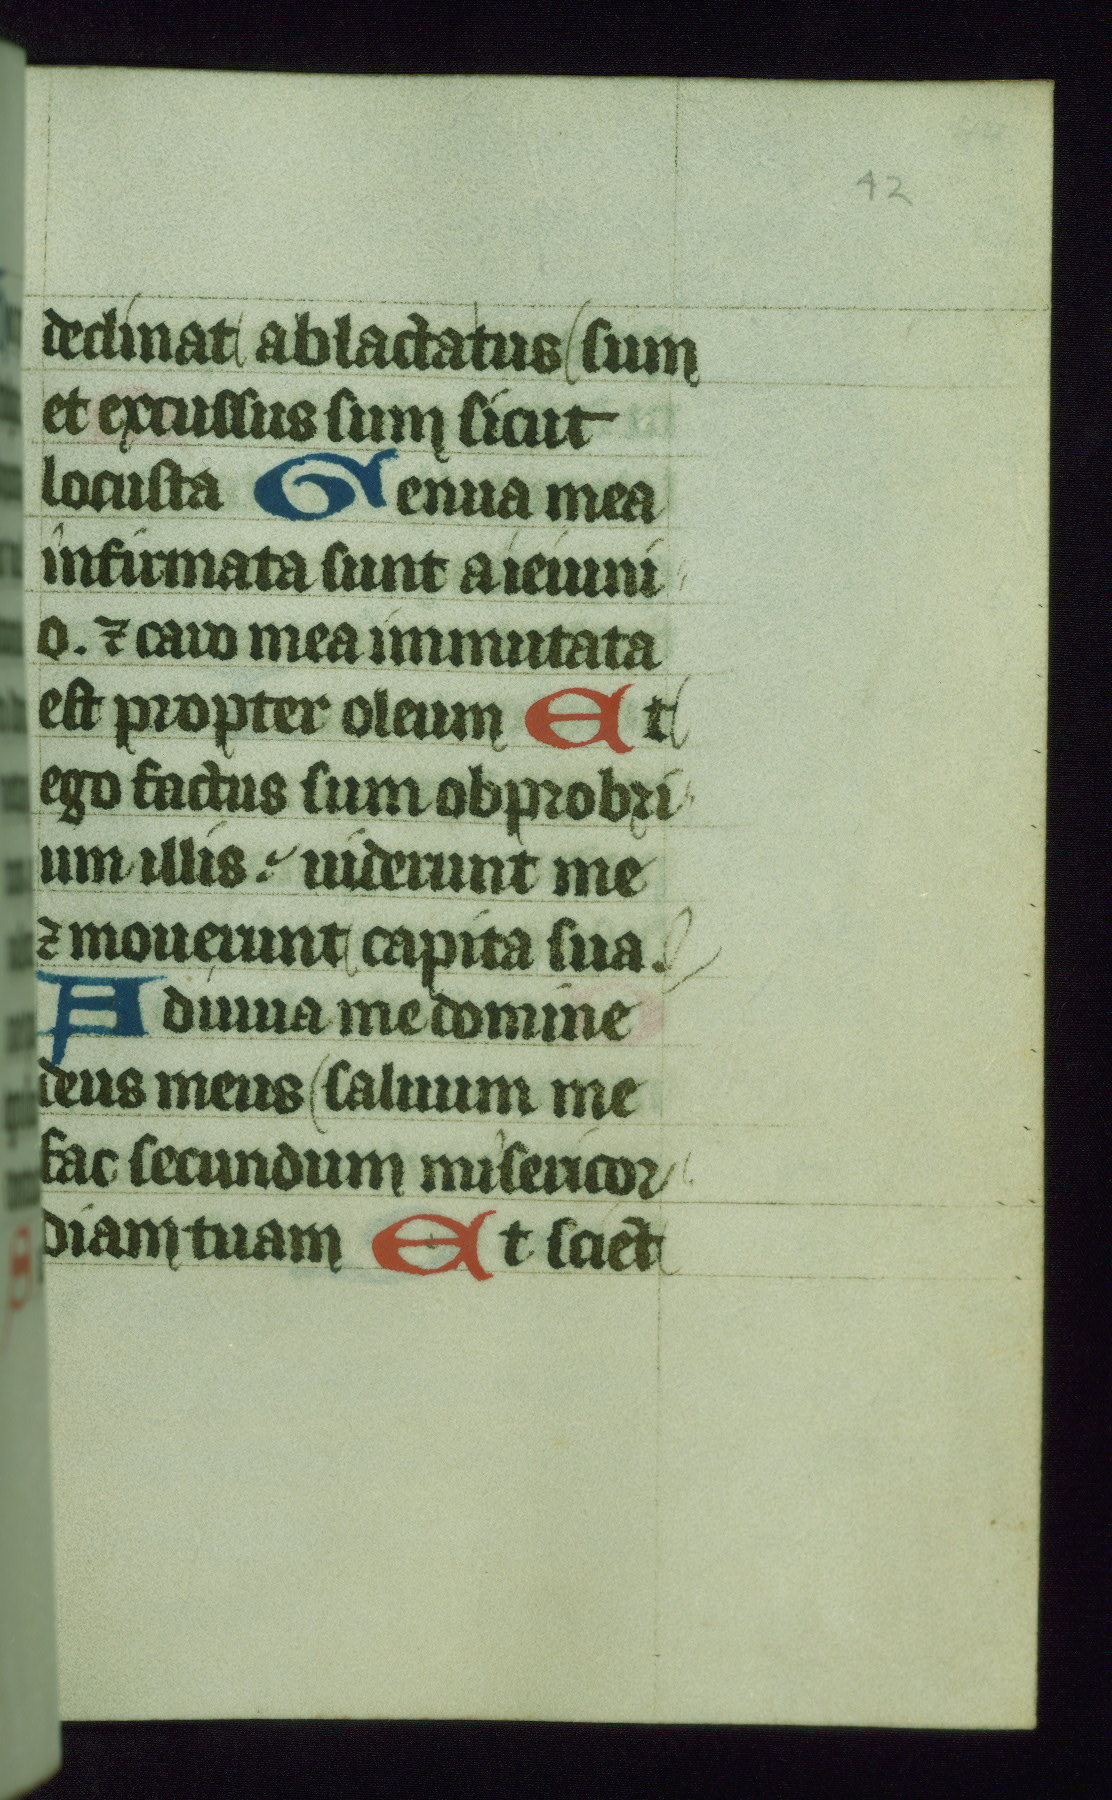 42
declinat ablactatus sum
et excussus sum sicut
locusta Genua mea
infirmata sunt a ieiuni
o. ⁊ caro mea immutata
est propter oleum Et
ego factus sum obprobri
um illis: uiderunt me
⁊ mouerunt capita sua.
Adiuua me domine
deus meus saluum me
fac secundum misericor
diam tuam Et sciẽt